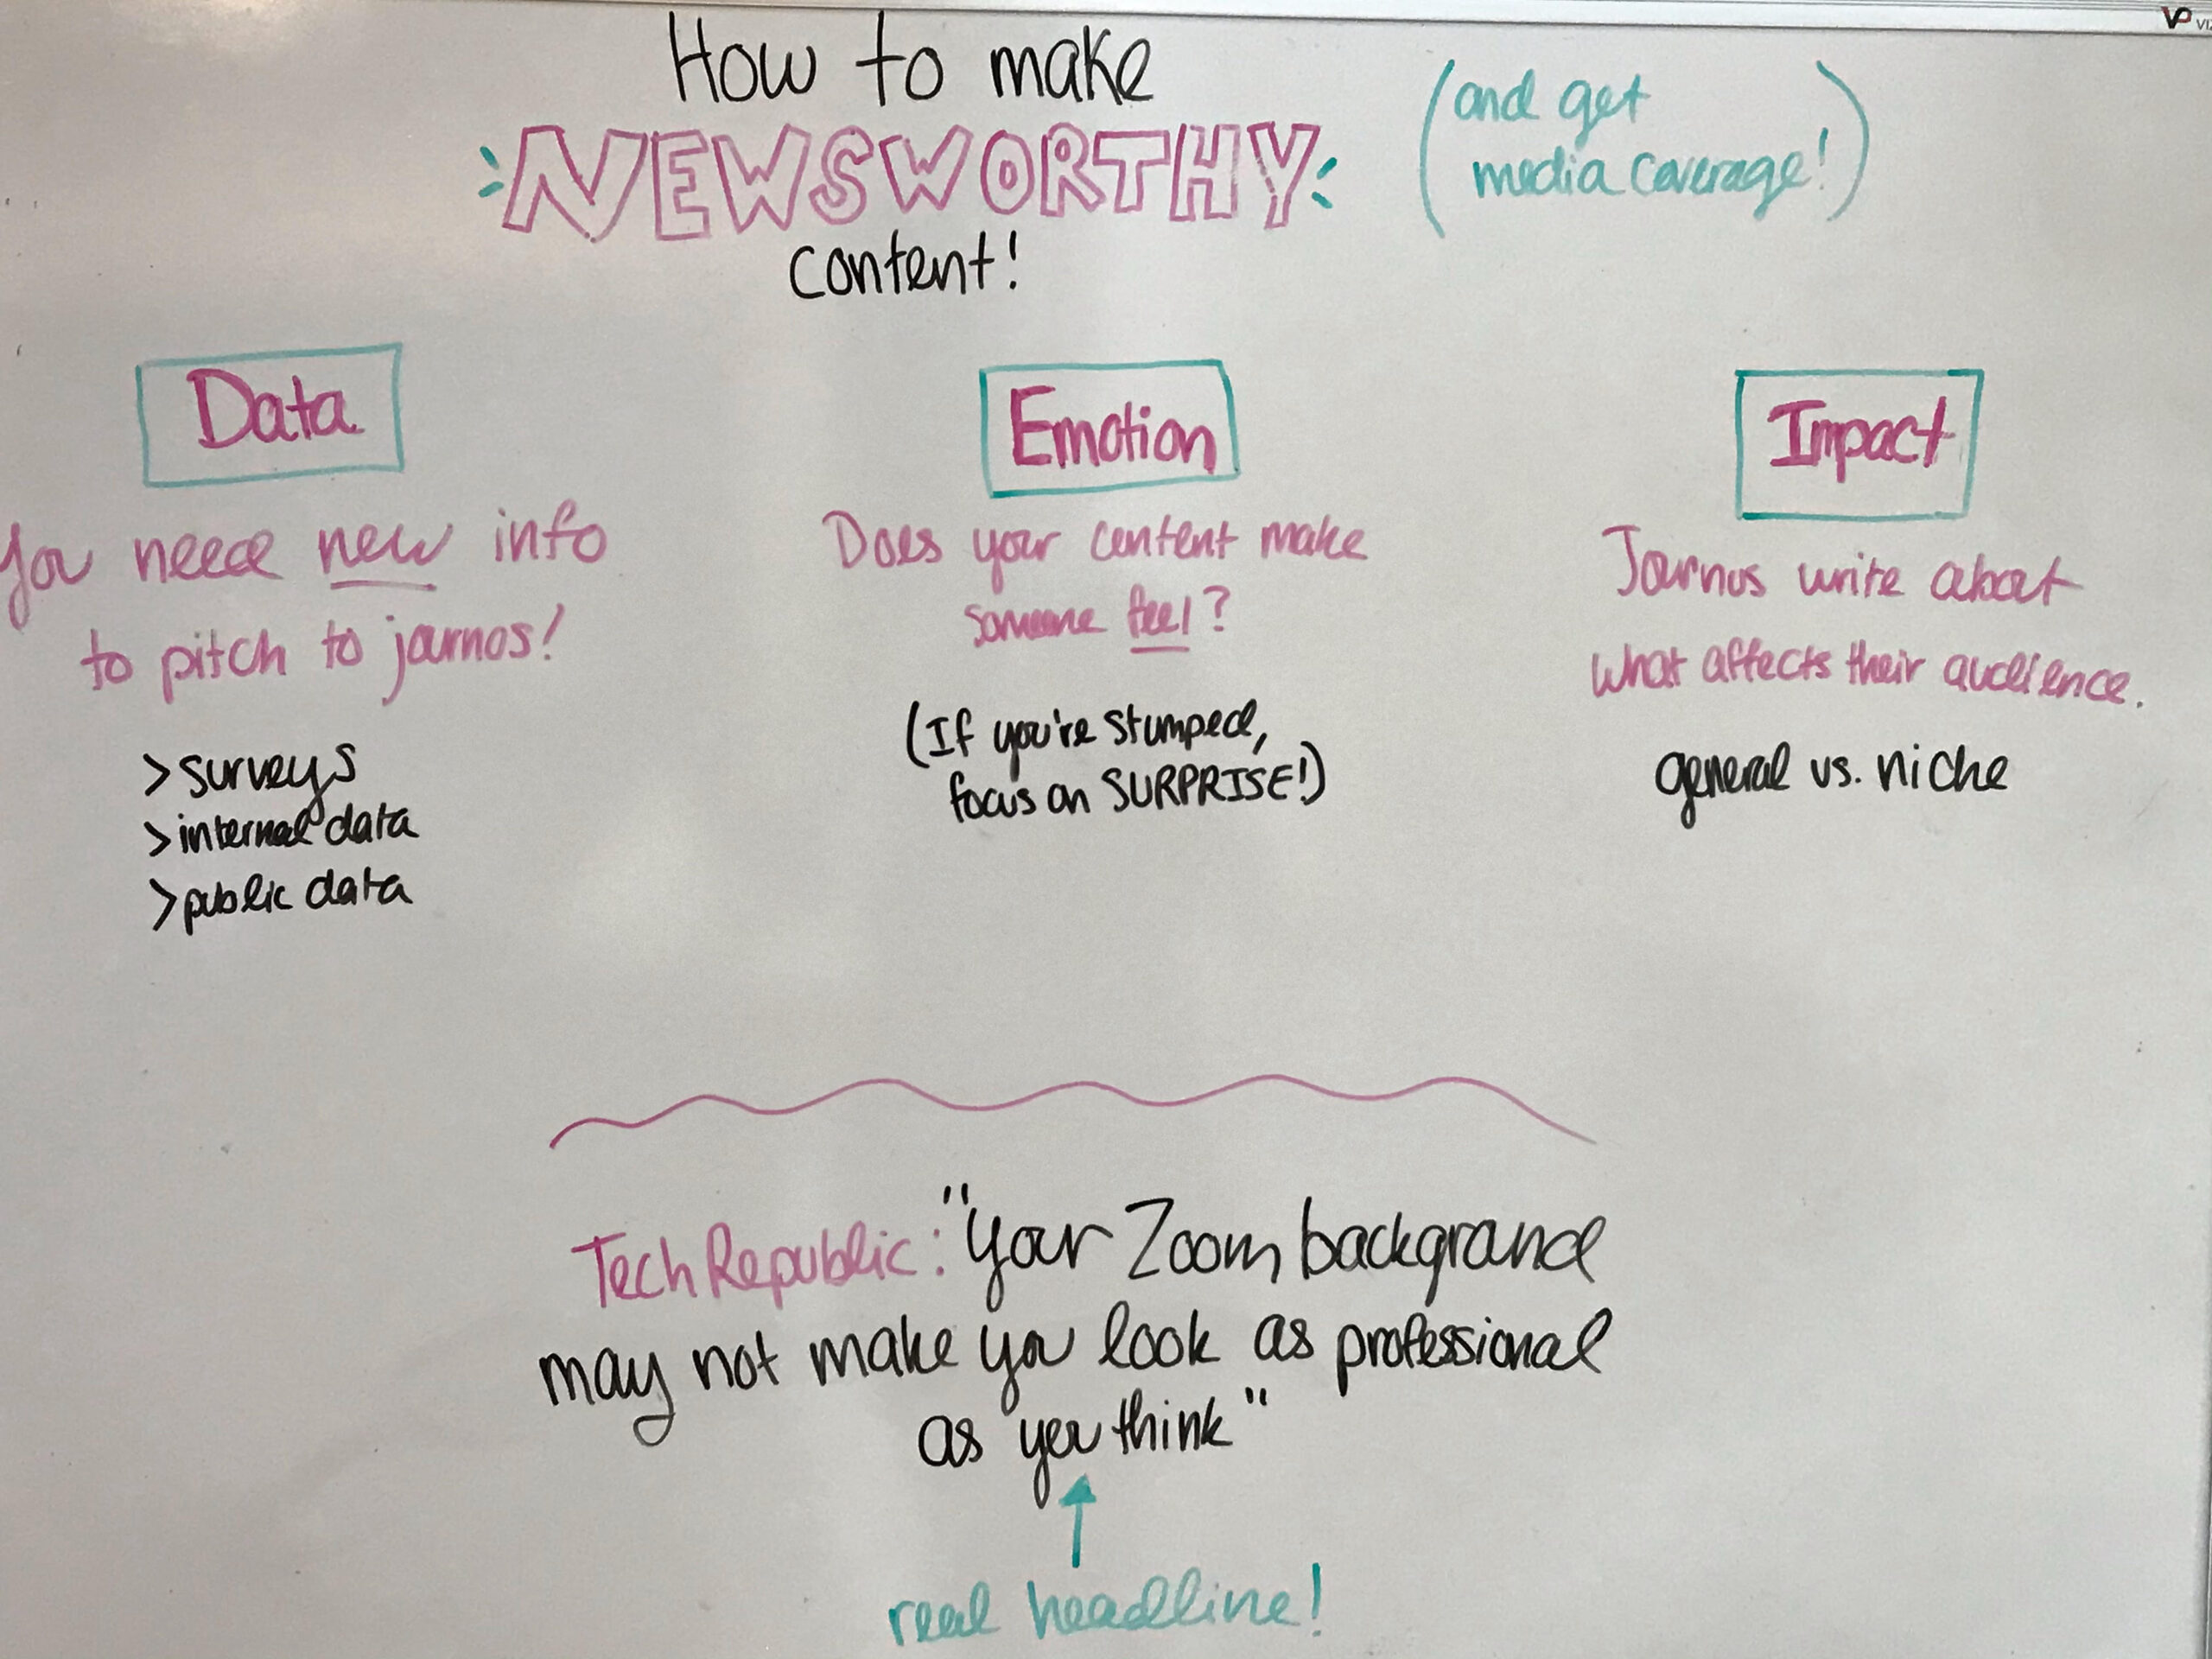 How to make
NEWSWORTHY
content!
(and get
media coverage!)
Data
You need new info
to pitch to journos!
>surveys
>internal data
>public data
Emotion
Does your content make
someone feel?
(If you're stumped,
focus on SURPRISE!)
Impact
Journos write about
what affects their audience.
general vs. niche
TechRepublic: "Your Zoom background
may not make you look as professional
as you think"
real headline!
VP